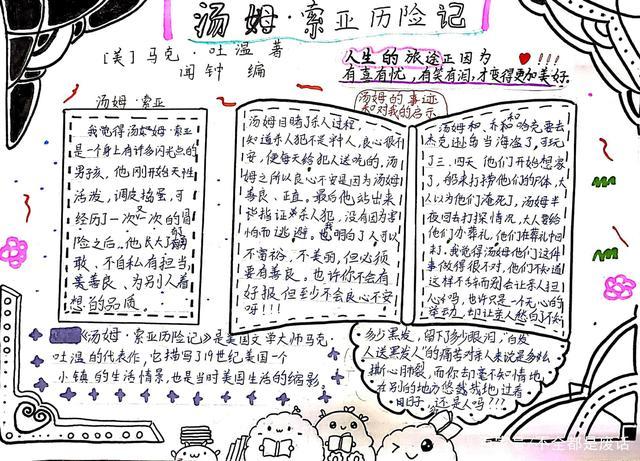 汤姆·索亚历险记
[美]马克·吐温 著
闻钟 编
人生的旅途正因为
有喜有忧,有笑有泪,才变得更加美好.
汤姆·索亚
我觉得汤姆·索亚
是一个身上有许多闪光点的
男孩,他刚开始天性
活泼,调皮捣蛋,可
经历了一次又一次的冒
险之后,他长大了,勇
敢、不自私有担当,
善良、为别人着
想的品质
汤姆的事迹
和对我的启示
汤姆目睹了杀人过程,
知道杀人犯不是
安,便每天给犯人送吃的,汤
姆之所以良心不安是因为汤姆
善良、正直。最后他站出来
没有因为害
怕而逃避。也明白了人可以
不富裕,不美丽,但必须
要有善良。也许你不会有
好报,但至少不会良心不安
呀!!!
汤姆和乔和哈克要去
杰克逊岛当海盗了,可玩
了三、四天他们开始想家
了,船来打捞他们的尸体,大
人以为他们淹死了,汤姆半
夜回去打探情况,大人要给
他们办葬礼,他们在葬礼中回
去。我觉得汤姆他们这件
事做得很不对,他们不知道
这样不辞而别会让亲人担
心吗,也许只是一个无心的
举动,却让亲人愁白了
多少黑发,留下了多少眼泪,"白发
人送黑发人"的痛苦对亲人来说是多么
撕心裂肺,而你却毫不知情地,
在别的地方悠哉哉地过着
日子,还是人吗???
《汤姆·索亚历险记》是美国文学大师马克·
吐温的代表作,它描写了19世纪美国一个
小镇的生活情景,也是当时美国生活的缩影。
不全都是废话